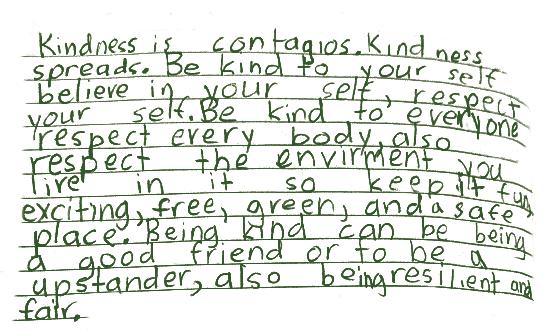 Kindness is contagios. Kind ness
spreads. Be kind to your self
believe in your self, respect
your self. Be kind to everyone
respect every body, also
respect the envirment you
live in it so keep it fun
exciting, free, green, and a safe
place. Being kind can be being
a good friend or to be a
upstander, also being resilient and
fair.